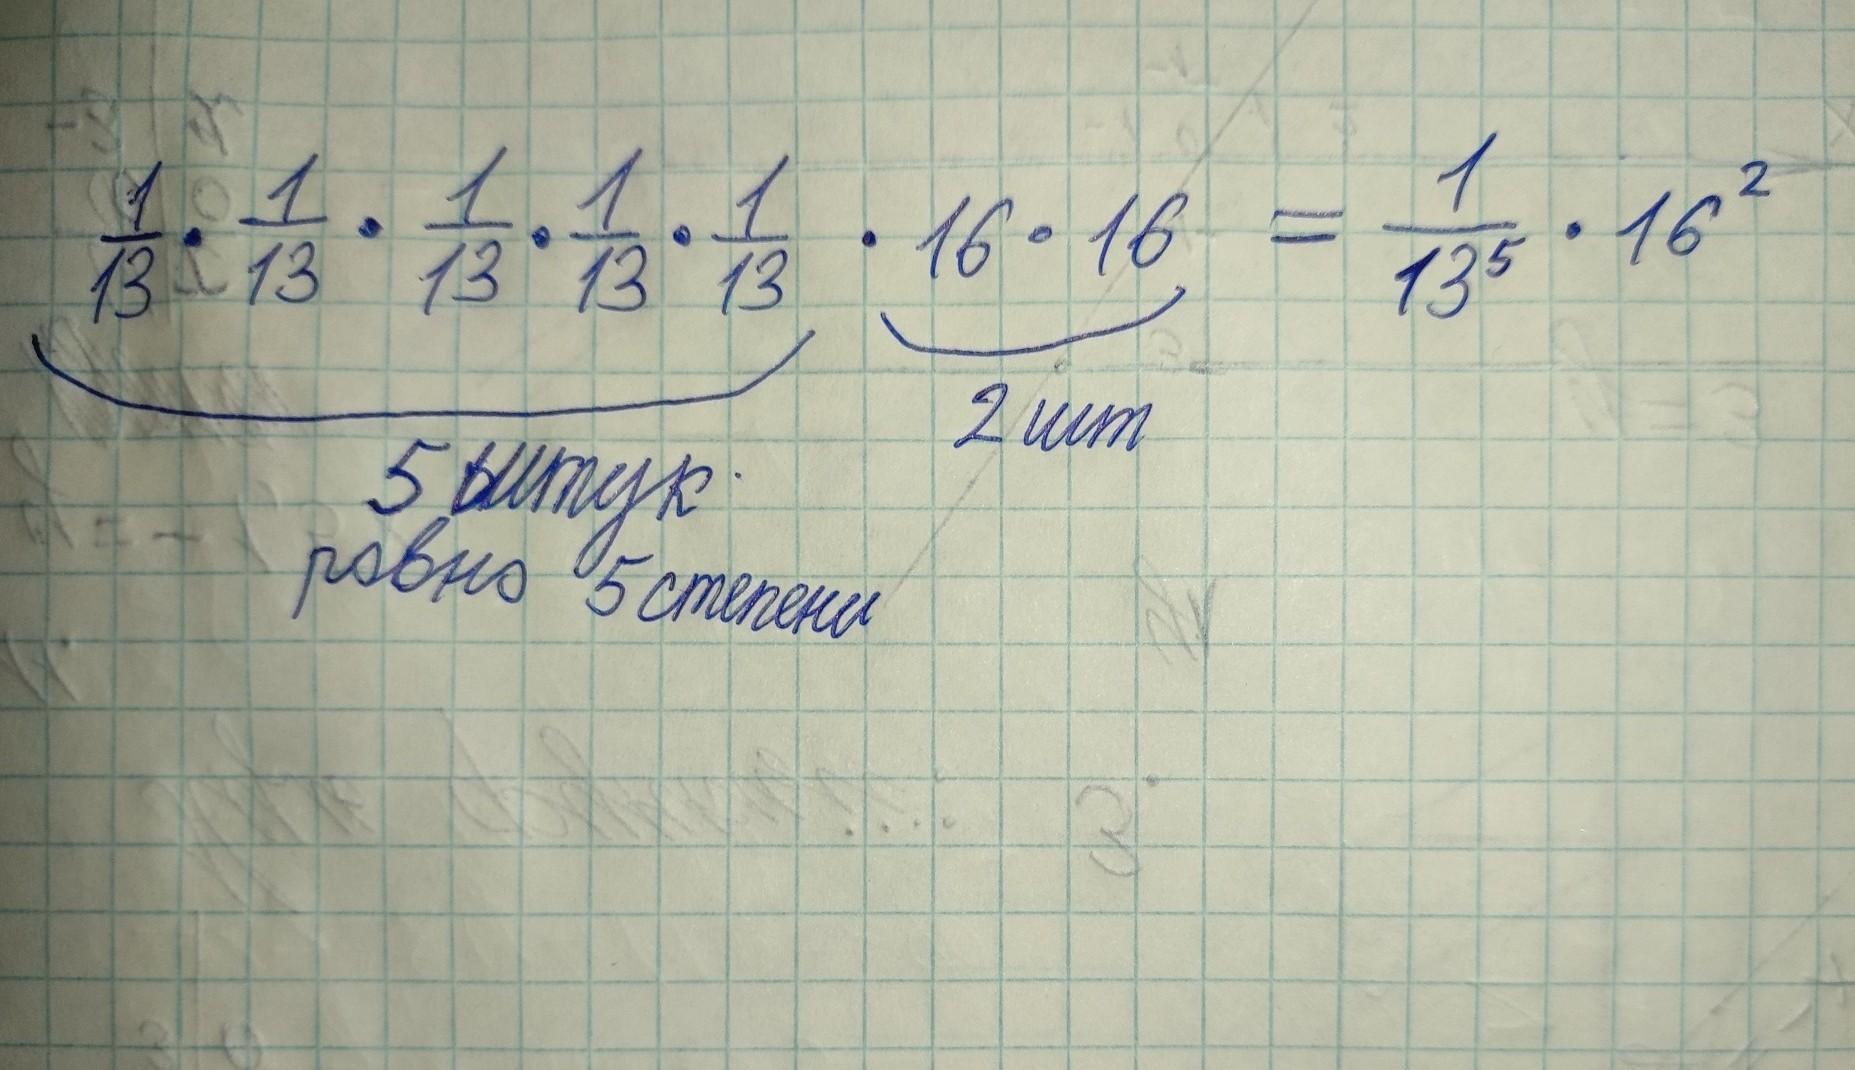 1/13 · 1/13 · 1/13 · 1/13 · 1/13 · 16 · 16 = 1/13⁵ · 16²
2 шт
5 штук
равно 5 степени